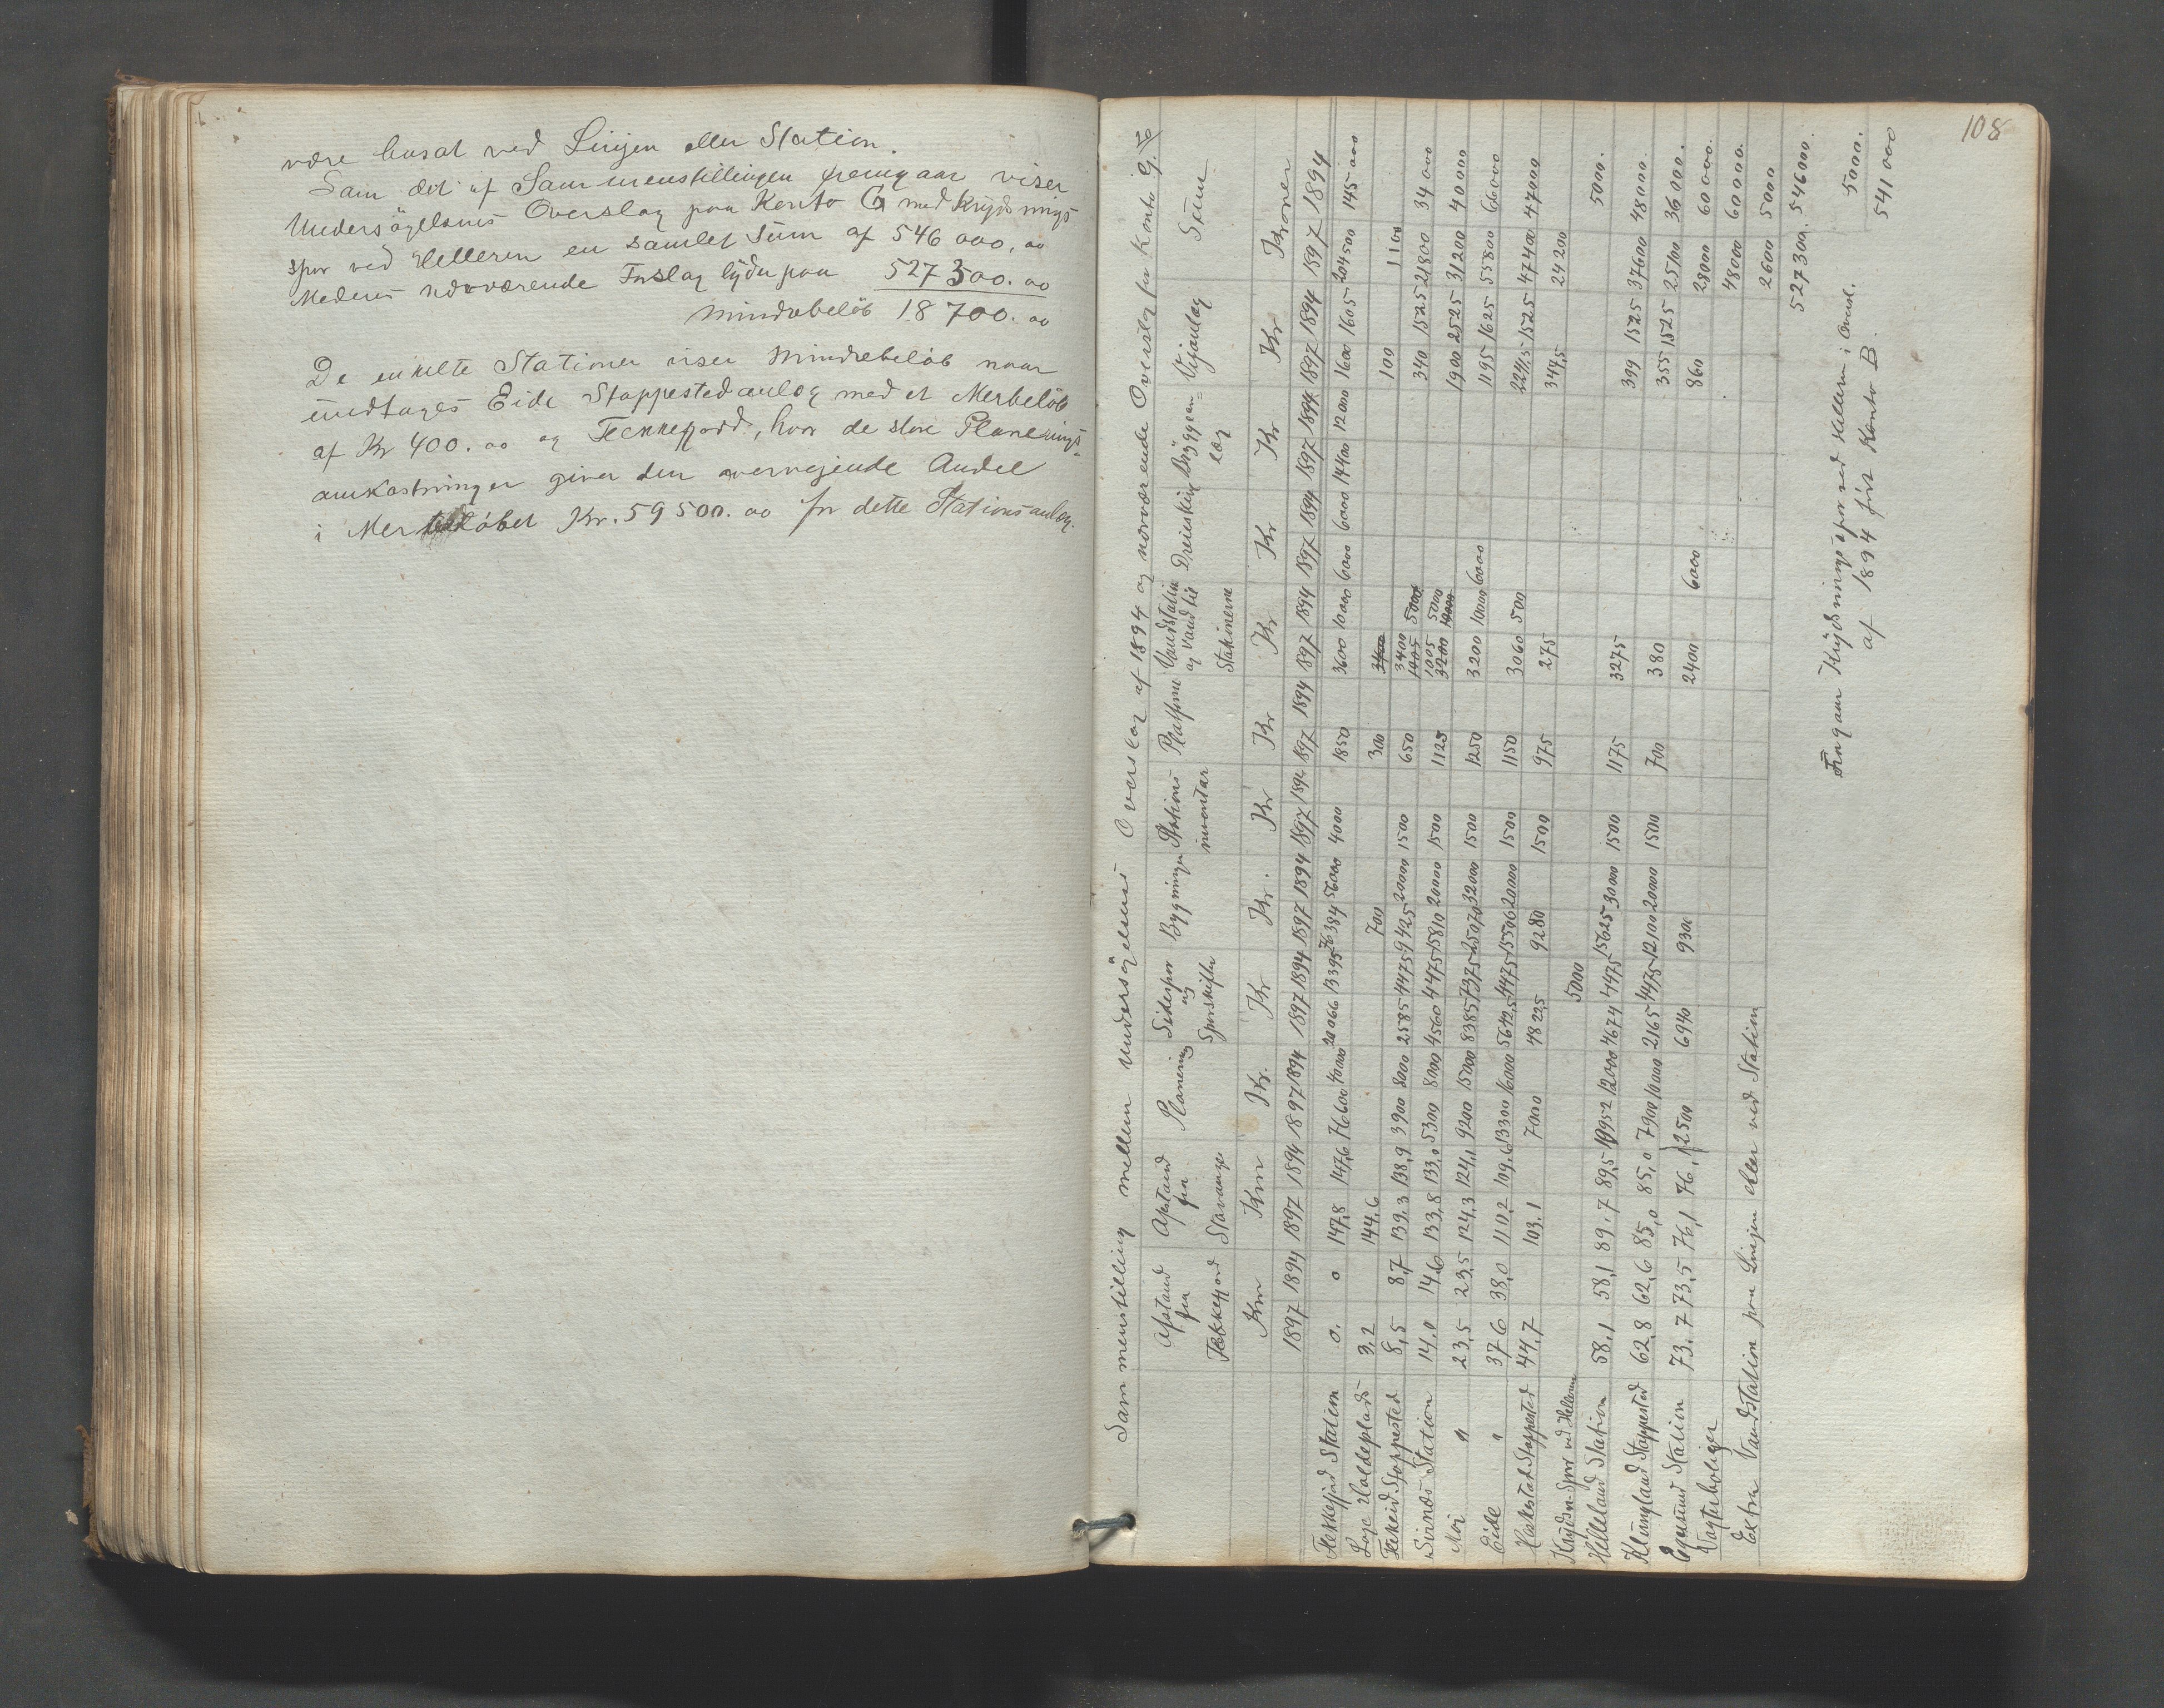 være busat ved Linjen eller Station.
Som det af Sammenstillingen fremgaar viser
Undersögelsens Overslag paa Konto G med Krydsnings
spor ved Helleren en samlet Sum af 546 000. 00
Medens nærværende Forslag lyder paa 527 300. 00
Mindrebelöb 18 700. 00
De enkelte Stationer viser Mindrebelöb naar
undtages Eide Stoppestedanlæg med et Merbelöb
af Kr 400. 00 og Flekkefjord, hvor de store Planerings-
omkostninger giver den overveiende Andel
i Merbelöbet Kr. 59 500. 00 for dette Stationsanlæg.
108
Sammenstilling mellem Undersögelsens Overslag af 1894 og nærværende Overslag for Konto G.
Afstand fra Flekkefjord Afstand fra Stavanger Planering Sidespor og Sporskifter Bygninger Stations inventar Platforme Vandstation og Vand til Stationerne Dreieskive Bryggean= læg Veianlæg Sum
Km Km Kr. Kr Kr. Kr Kr Kr Kr Kr Kr Kroner
1897 1894 1897 1894 1897 1894 1897 1894 1897 1894 1897 1894 1897 1894 1897 1894 1897 1894 1897 1894 1897 1894 1897 1894
Flekkefjord Station 0. 0 147,8 147,6 76600 40000 20066 13395 76384 56000 4000 1850 3600 10000 6000 6000 14400 12000 1600 1605 204500 145000
Loge Holdeplads 3,2 144,6 700 300 100 1100
Flikeid Stoppested 8,5 8,7 139,3 138,9 3900 8000 2585 4475 9425 20000 1500 650 3400 5000 340 1525 21800 34000
Sirnæs Station 14,0 14,6 133,8 133,0 5300 8000 4560 4475 15810 20000 1500 1125 1005 5000 1900 2525 31200 40000
Moi " 23,5 23,5 124,3 124,1 9200 15000 8385 7375 25070 32000 1500 1250 3200 10000 6000 1195 1625 55800 66000
Eide " 37,6 38,0 110,2 109,6 13300 16000 5642,5 4475 15506 20000 1500 1150 3060 500 2241,5 1525 47400 47000
Heskestad Stoppested 44,7 103,1 7000 4822,5 9280 1500 975 275 347,5 24200
Krydsn. Spor ved Helleren 5000 5000.
Helleland Station 58,1 58,1 89,7 89,5 9952 12000 4674 4475 15625 30000 1500 1175 3275 399 1525 37600 48000.
Klungland Stoppested 62,8 62,6 85,0 85,0 7900 10000 2165 4475 12100 20000 1500 700 380 355 1525 25100 36000.
Egersund Station 73,7 73,5 76,1 76,1 2500 6940 9300 2400 6000 860 28000 60000.
Vogterboliger 48000 60000.
Extra Vandstation paa Linjen eller ved Station 2600 5000
527300. 546000.
Fragaar Krydsningsspor ved Helleren i Overl. 5000.
af 1894 fört Konto B. 541000